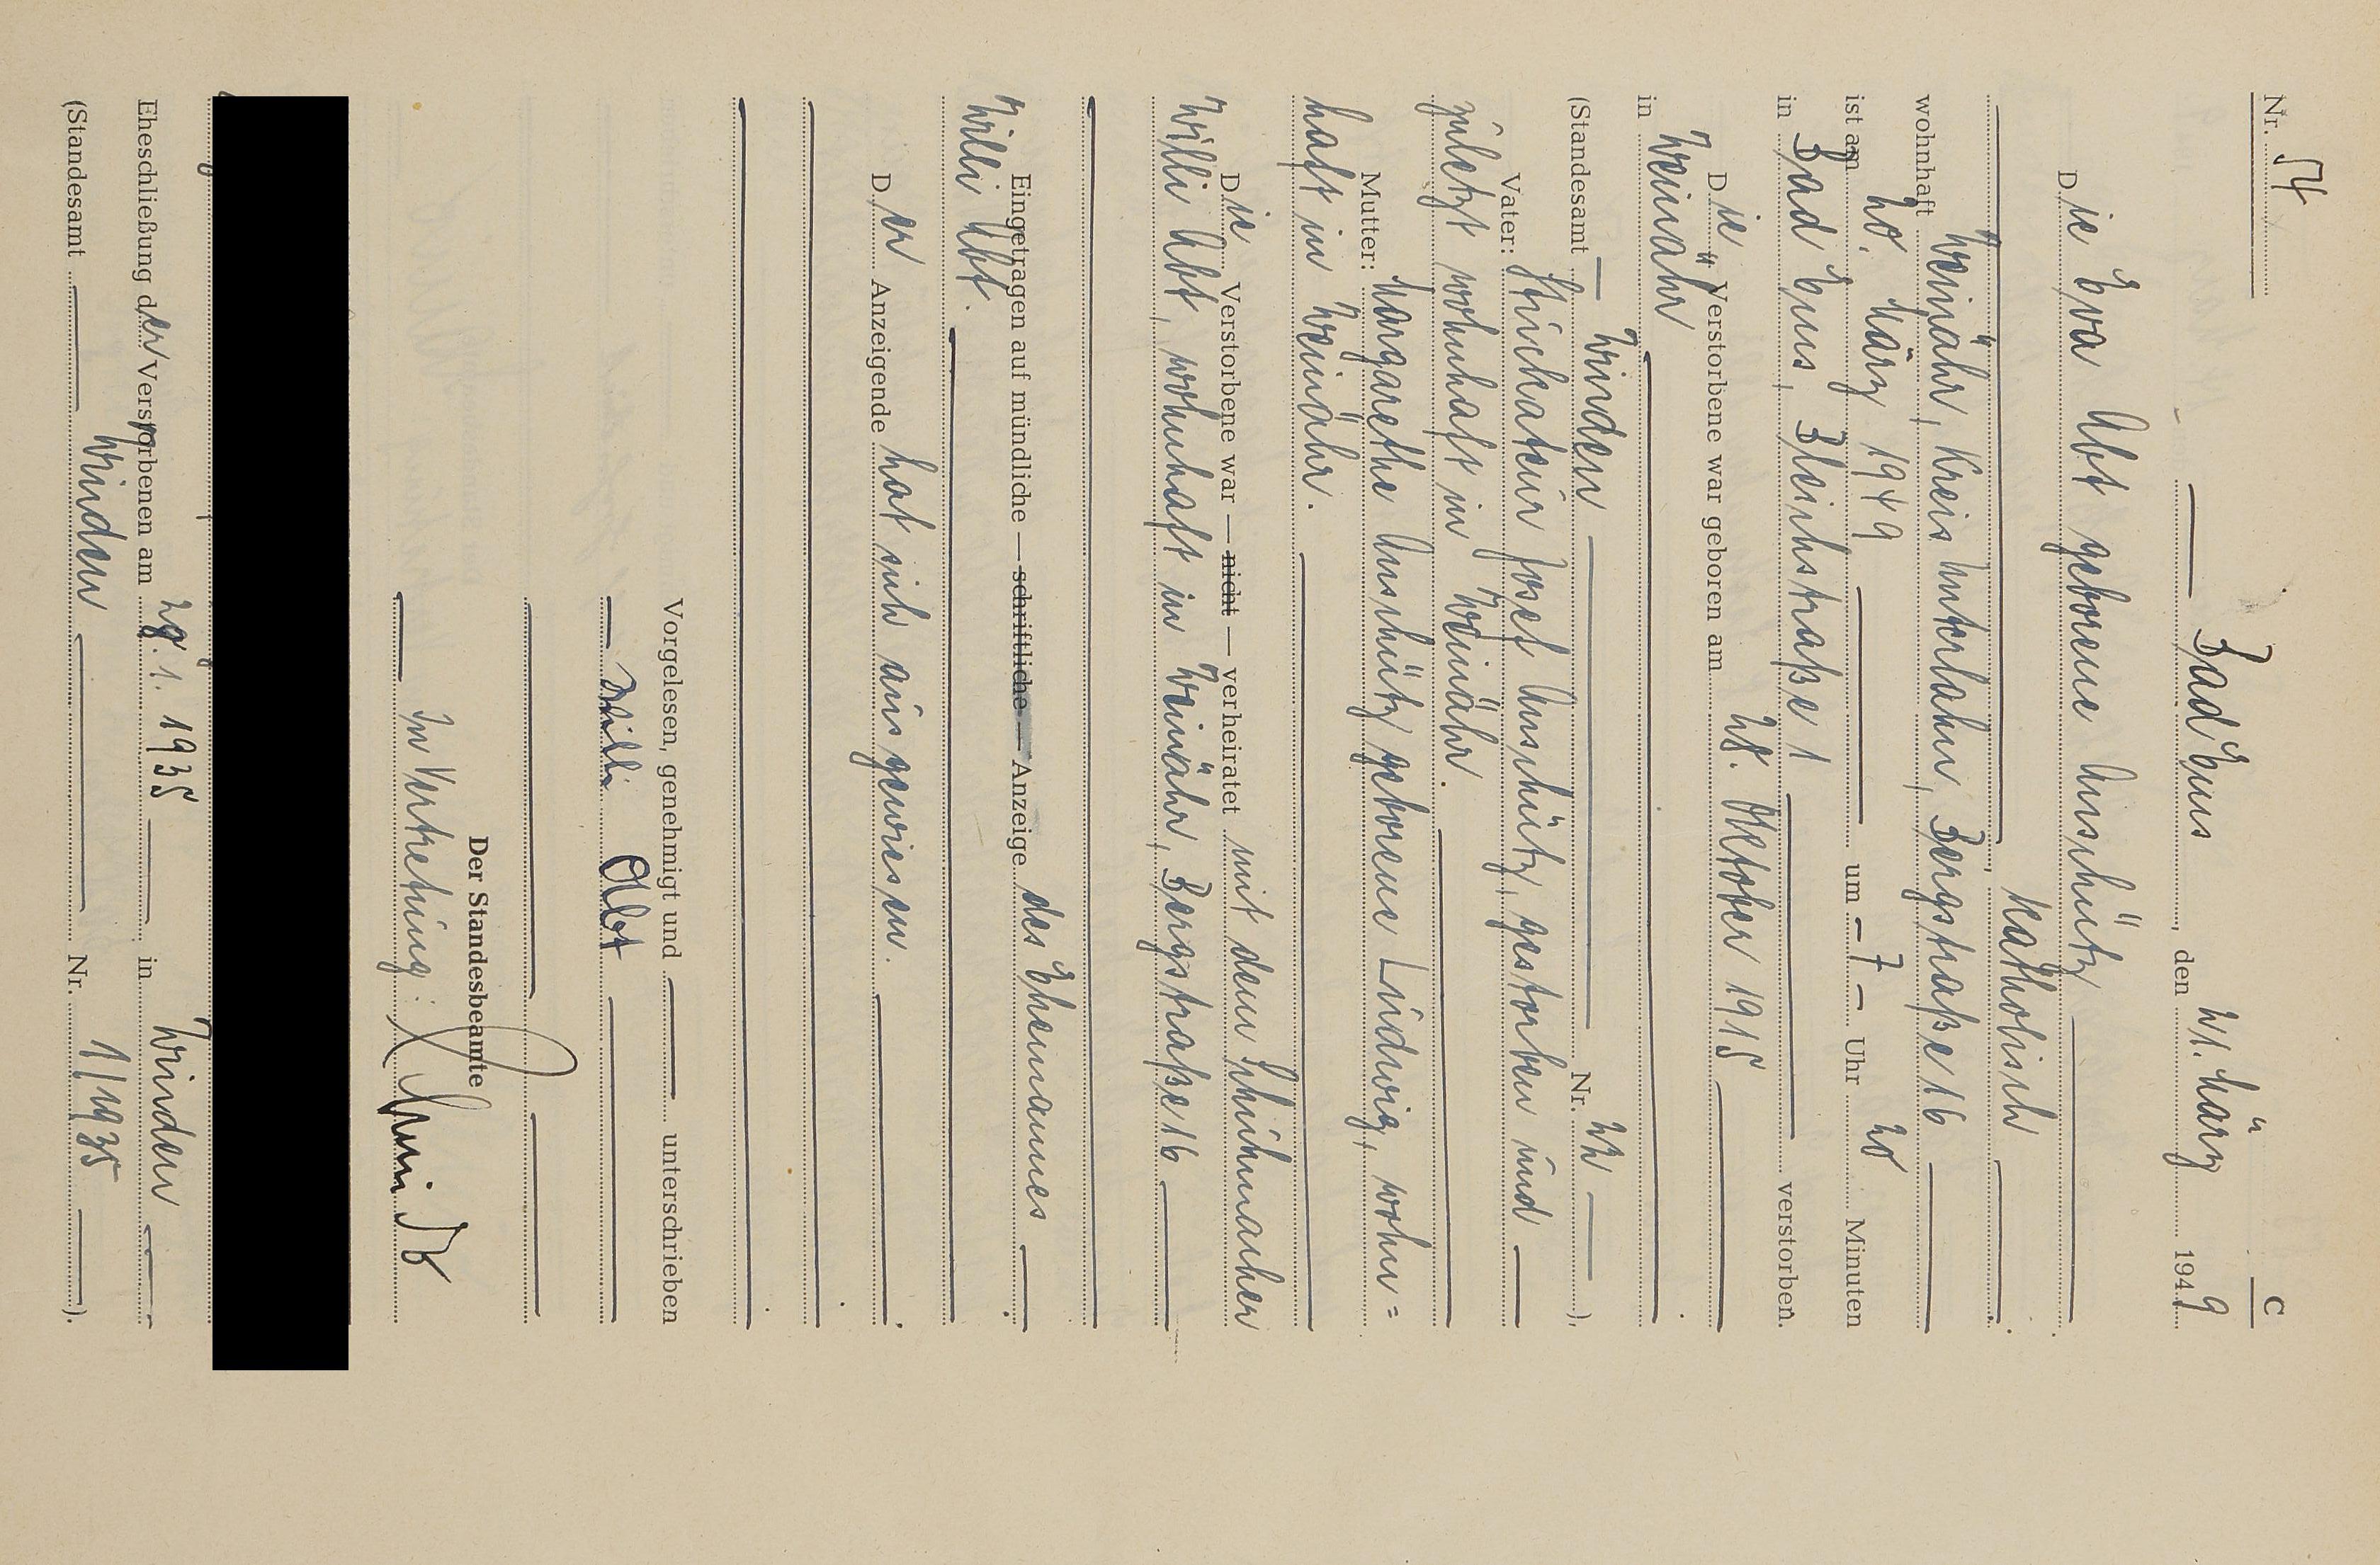 Nr. 54
C
Bad Ems, den 21. März 1949
Die Eva Abt geborene Anschütz
katholisch
wohnhaft Weinähr, Kreis Unterlahn, Bergstraße 16
ist am 20. März 1949 um - 7 - Uhr 20 Minuten
in Bad Ems, Bleichstraße 1 verstorben.
Die Verstorbene war geboren am 28. Oktober 1915
in Weinähr
(Standesamt Winden Nr. 22 ).
Vater: Stuckateur Josef Anschütz, gestorben und
zuletzt wohnhaft in Weinähr.
Mutter: Margarethe Anschütz geborene Ludwig, wohn=
haft in Weinähr.
Die Verstorbene war — nicht — verheiratet mit dem Schuhmacher
Willi Abt, wohnhaft in Weinähr, Bergstraße 16
Eingetragen auf mündliche — schriftliche — Anzeige des Ehemannes
Willi Abt.
Der Anzeigende hat sich ausgewiesen.
Vorgelesen, genehmigt und unterschrieben
Willi Abt
Der Standesbeamte
In Vertretung: Schmidt
Eheschließung der Verstorbenen am 29. 1. 1935 in Winden
(Standesamt Winden Nr. 1/1935 ).